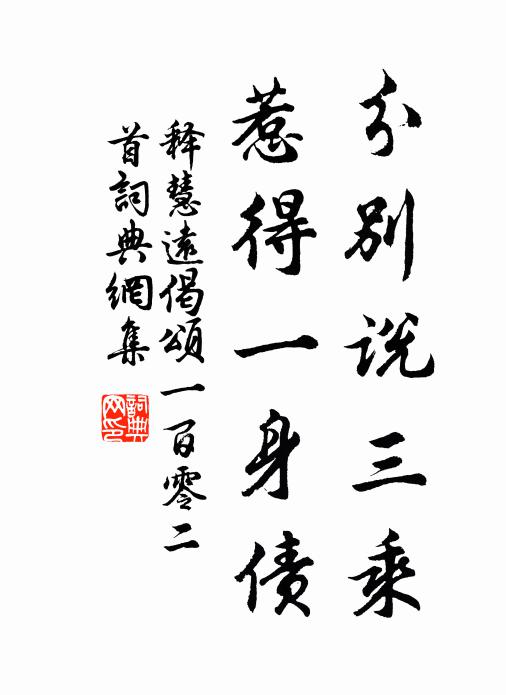 分別说三乘
惹得一身债
释慧遠偈頌一百零二
首詞典網集
詞典
网印